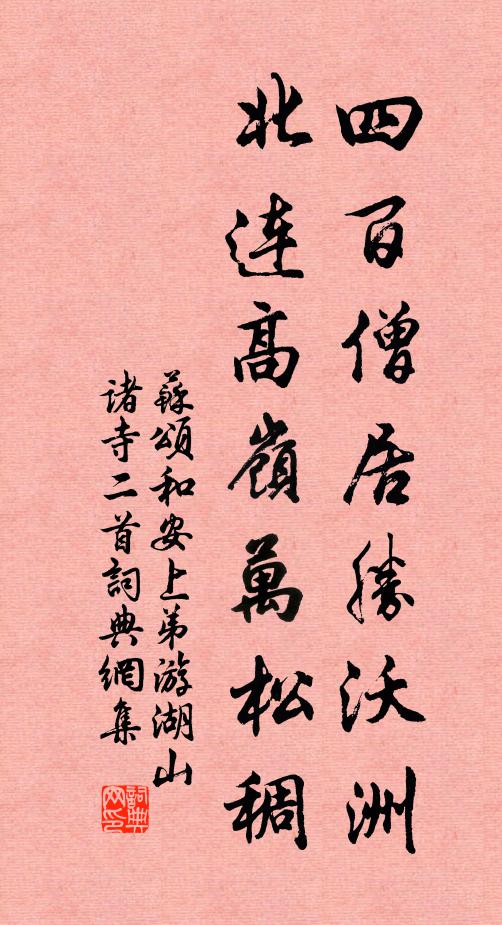 四百僧居勝沃洲
北连高嶺萬松稠
蘇頌和安上弟游湖山
诸寺二首詞典網集
詞典網印